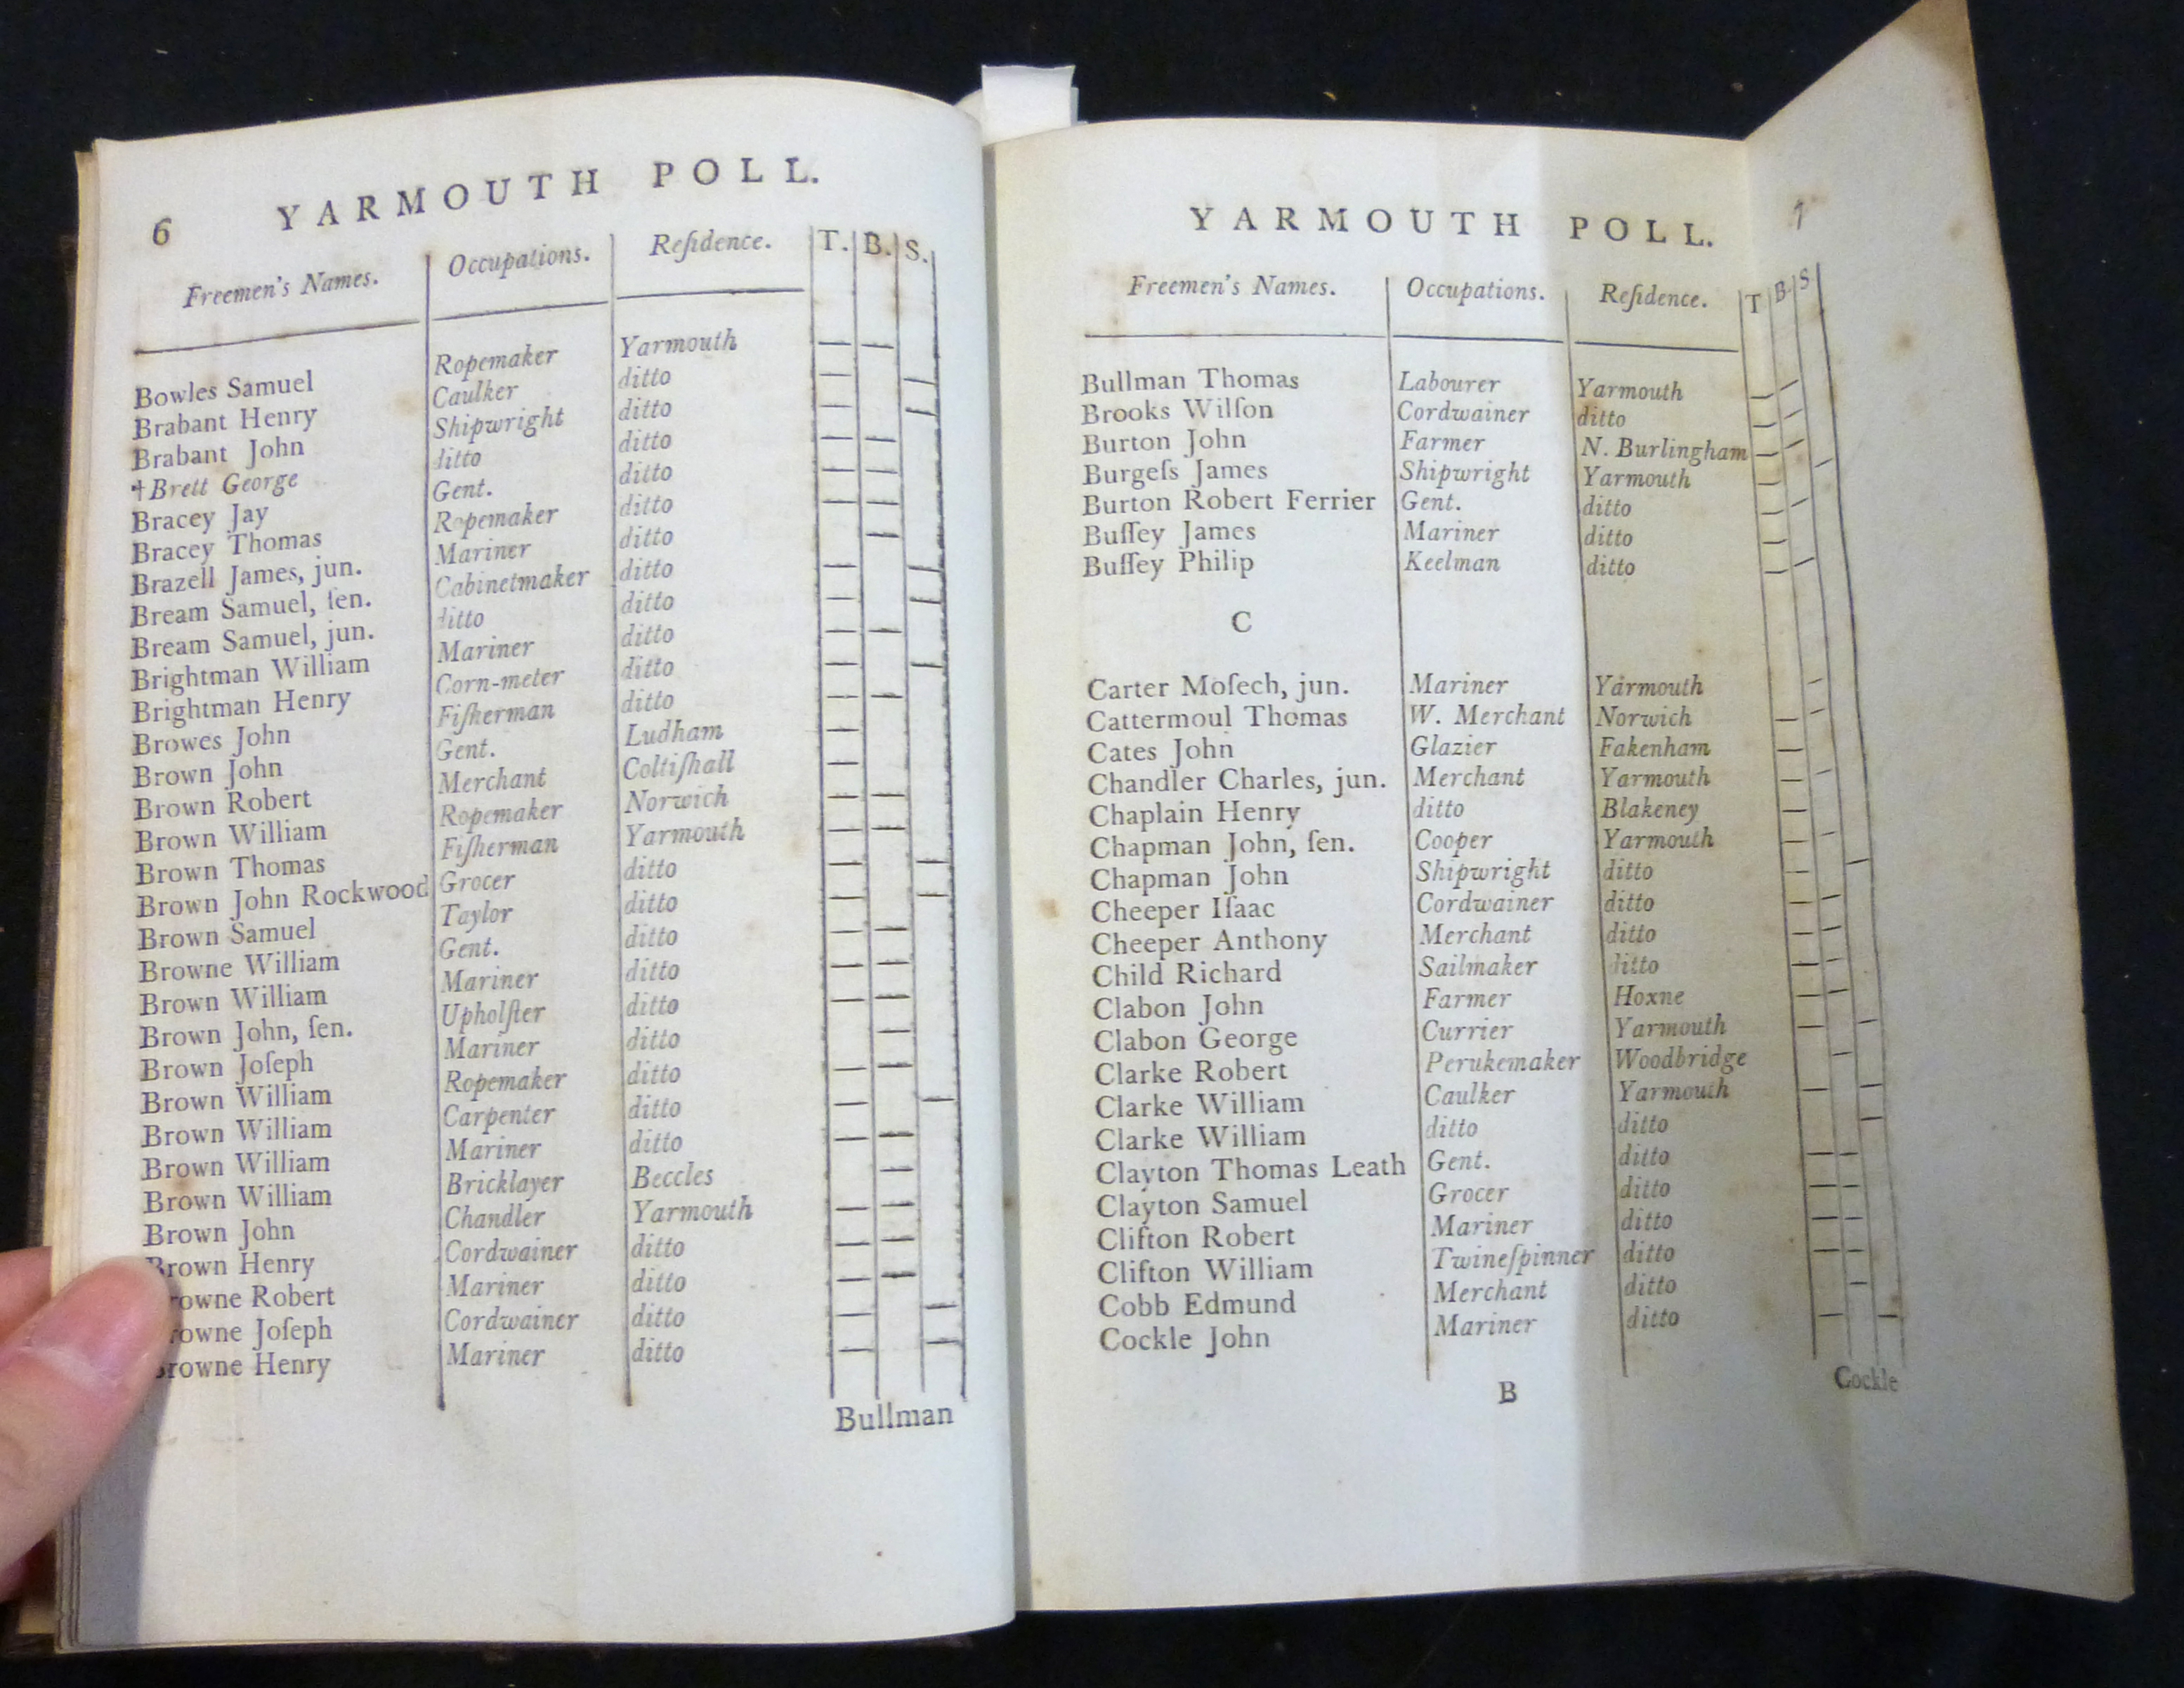 6 YARMOUTH POLL.
Freemen's Names. Occupations. Reſidence. T. B. S.
Bowles Samuel Ropemaker Yarmouth
Brabant Henry Caulker ditto
Brabant John Shipwright ditto
†Brett George ditto ditto
Bracey Jay Gent. ditto
Bracey Thomas Ropemaker ditto
Brazell James, jun. Mariner ditto
Bream Samuel, ſen. Cabinetmaker ditto
Bream Samuel, jun. ditto ditto
Brightman William Mariner ditto
Brightman Henry Corn-meter ditto
Browes John Fiſherman ditto
Brown John Gent. Ludham
Brown Robert Merchant Coltiſhall
Brown William Ropemaker Norwich
Brown Thomas Fiſherman Yarmouth
Brown John Rockwood Grocer ditto
Brown Samuel Taylor ditto
Browne William Gent. ditto
Brown William Mariner ditto
Brown John, ſen. Upholſter ditto
Brown Joſeph Mariner ditto
Brown William Ropemaker ditto
Brown William Carpenter ditto
Brown William Mariner ditto
Brown William Bricklayer Beccles
Brown John Chandler Yarmouth
Brown Henry Cordwainer ditto
Browne Robert Mariner ditto
Browne Joſeph Cordwainer ditto
Browne Henry Mariner ditto
Bullman
YARMOUTH POLL. 7
Freemen's Names. Occupations. Reſidence. T B. S
Bullman Thomas Labourer Yarmouth
Brooks Wilſon Cordwainer ditto
Burton John Farmer N. Burlingham
Burgeſs James Shipwright Yarmouth
Burton Robert Ferrier Gent. ditto
Buſſey James Mariner ditto
Buſſey Philip Keelman ditto
C
Carter Moſech, jun. Mariner Yarmouth
Cattermoul Thomas W. Merchant Norwich
Cates John Glazier Fakenham
Chandler Charles, jun. Merchant Yarmouth
Chaplain Henry ditto Blakeney
Chapman John, ſen. Cooper Yarmouth
Chapman John Shipwright ditto
Cheeper Iſaac Cordwainer ditto
Cheeper Anthony Merchant ditto
Child Richard Sailmaker ditto
Clabon John Farmer Hoxne
Clabon George Currier Yarmouth
Clarke Robert Perukemaker Woodbridge
Clarke William Caulker Yarmouth
Clarke William ditto ditto
Clayton Thomas Leath Gent. ditto
Clayton Samuel Grocer ditto
Clifton Robert Mariner ditto
Clifton William Twineſpinner ditto
Cobb Edmund Merchant ditto
Cockle John Mariner ditto
B
Cockle